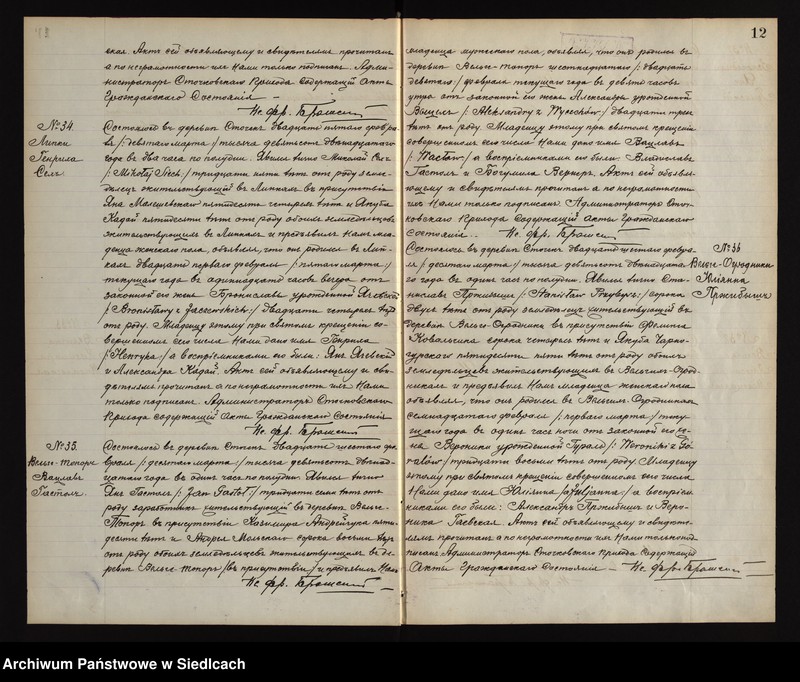 12
екая. Актъ сей объявляющему и свидѣтелямъ прочитанъ
а по неграмотности ихъ Нами только подписанъ. Адми-
нистраторъ Сточковскаго Прихода Содержащій Акты
Гражданскаго Состоянія
Кс. Фр.
№ 34.
Липки
Генрика
Состоялось въ деревнѣ Сточекъ двадцать пятаго февра-
ля /: девятаго марта :/ тысяча девятьсотъ двѣнадцатаго
года въ два часа по полудни. Явился лично Николай
/: Mikołaj :/ тридцати пяти лѣтъ отъ роду земле-
дѣлецъ жительствующій въ Липкахъ въ присутствіи
Яна пятидесяти четырехъ лѣтъ и Якуба
пятидесяти лѣтъ отъ роду обоихъ земледѣльцевъ
жительствующихъ въ Липкахъ и предъявилъ Намъ мла-
денца женскаго пола, объявляя, что онъ родился въ Лип-
кахъ двадцать перваго февраля /: пятаго марта :/
текущаго года въ одиннадцать часовъ вечера отъ
законной его жены Брониславы урожденной
/: Bronisławy z :/ двадцати четырехъ лѣтъ
отъ роду. Младенцу этому при святомъ крещеніи со-
вершенномъ его числа Нами дано имя Генрика
/: Henryka :/ а воспріемниками его были: Янъ
и Александра Актъ сей объявляющему и сви-
дѣтелямъ прочитанъ а по неграмотности ихъ Нами
только подписанъ. Администраторъ Сточковскаго
Прихода Содержащій Акты Гражданскаго Состоянія
Кс. Фр.
№ 35.
Вельге-Топоръ
Вацлавъ
Гастолъ
Состоялось въ деревнѣ Сточекъ двадцать шестаго фе-
враля /: десятаго марта :/ тысяча девятьсотъ двѣнад-
цатаго года въ одинъ часъ по полудни. Явился лично
Янъ Гастолъ /: Jan Gastoł :/ тридцати семи лѣтъ отъ
роду заработникъ жительствующій въ деревнѣ Вельге-
Топоръ въ присутствіи Казимира Андрейчука пяти-
десяти лѣтъ и Андрея сорока восьми лѣтъ
отъ роду обоихъ земледѣльцевъ жительствующихъ въ де-
ревнѣ Вельге-Топоръ /въ присутствіи/ и предъявилъ Намъ
Кс. Фр.
младенца мужескаго пола, объявляя, что онъ родился въ
деревнѣ Вельге-Топоръ шестнадцатаго /: двадцать
девятаго :/ февраля текущаго года въ девять часовъ
утра отъ законной его жены Александры урожденной
/: Aleksandry z :/ двадцати трехъ
лѣтъ отъ роду. Младенцу этому при святомъ крещеніи
совершенномъ его числа Нами дано имя Вацлавъ
/: Wacław :/ а воспріемниками его были: Владиславъ
Гастолъ и Богумила Вернеръ. Актъ сей объявля-
ющему и свидѣтелямъ прочитанъ а по неграмотности
ихъ Нами только подписанъ. Администраторъ Сточ-
ковскаго Прихода Содержащій Акты Гражданскаго
Состоянія Кс. Фр.
№ 36
Юліянна
Состоялось въ деревнѣ Сточекъ двадцать шестаго февра-
ля /: десятаго марта :/ тысяча девятьсотъ двѣнадцата-
го года въ одинъ часъ по полудни. Явился лично Ста-
ниславъ /: Stanisław :/ сорока
двухъ лѣтъ отъ роду земледѣлецъ жительствующій въ
деревнѣ въ присутствіи Феликса
Ковальчика сорока четырехъ лѣтъ и Якуба Чарно-
гурскаго пятидесяти пяти лѣтъ отъ роду обоихъ
земледѣльцевъ жительствующихъ въ
и предъявилъ Намъ младенца женскаго пола
объявляя, что онъ родился въ
семнадцатаго февраля /: перваго марта :/ теку-
щаго года въ одинъ часъ ночи отъ законной его же-
ны Вероники урожденной /: Weroniki z Gó-
ralów :/ тридцати восьми лѣтъ отъ роду. Младенцу
этому при святомъ крещеніи совершенномъ его числа
Нами дано имя Юліянна /: Juljanna :/ а воспріем-
никами его были: Александръ и Веро-
ника Гаевская. Актъ сей объявляющему и свидѣте-
лямъ прочитанъ а по неграмотности ихъ Нами только под-
писанъ. Администраторъ Сточковскаго Прихода Содержащій
Акты Гражданскаго Состоянія Кс. Фр.
Archiwum Państwowe w Siedlcach